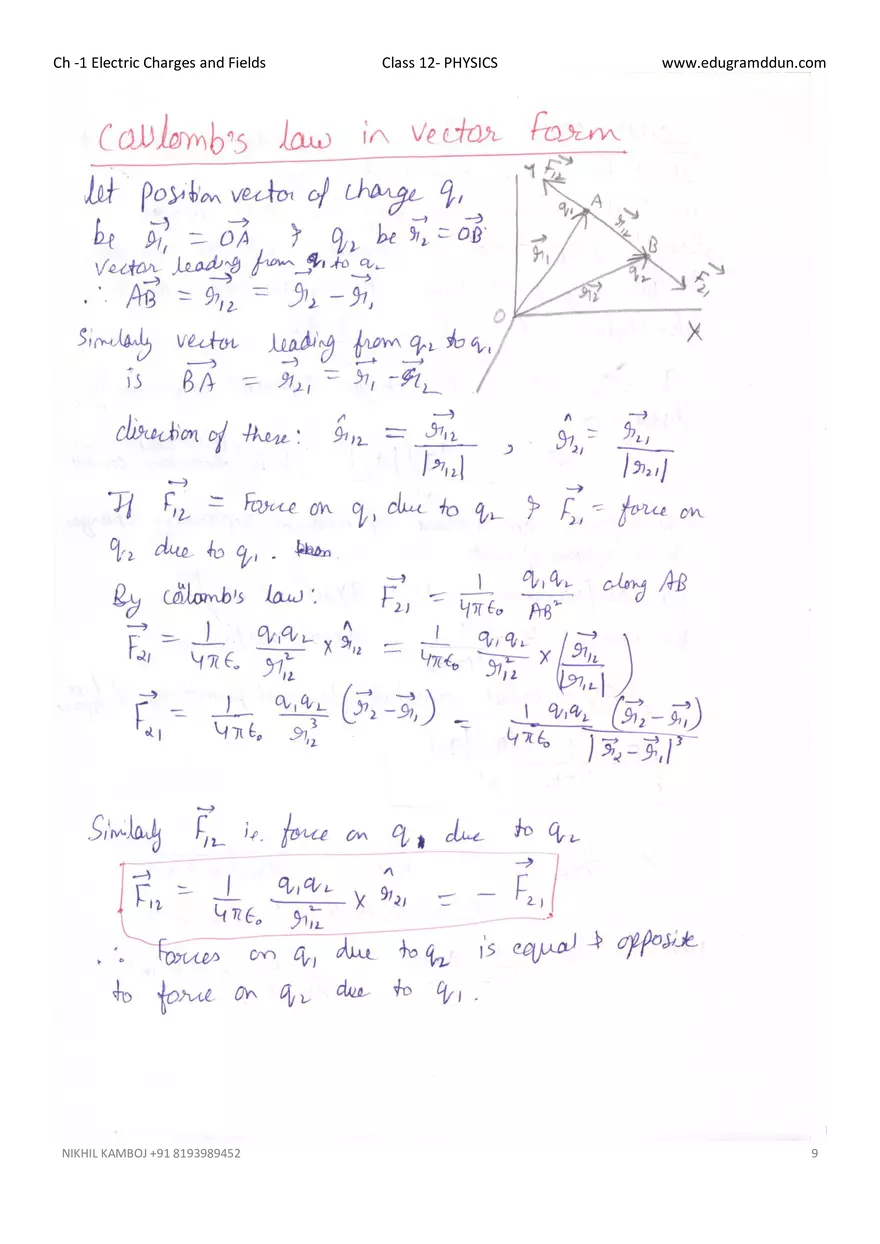 Ch -1 Electric Charges and Fields Class 12- PHYSICS www.edugramddun.com
Coulomb's law in vector form
let position vector of charge q₁
be r⃗₁ = OA⃗ & q₂ be r⃗₂ = OB⃗
vector leading from q₁ to q₂
∴ AB⃗ = r⃗₁₂ = r⃗₂ − r⃗₁
Y F⃗₁₂
q₁ A r⃗₁₂
r⃗₁ B
q₂ F⃗₂₁
r⃗₂
O X
Similarly vector leading from q₂ to q₁
is BA⃗ = r⃗₂₁ = r⃗₁ − r⃗₂
direction of these: r̂₁₂ = r⃗₁₂ / |r₁₂| , r̂₂₁ = r⃗₂₁ / |r₂₁|
If F⃗₁₂ = Force on q₁ due to q₂ & F⃗₂₁ = force on
q₂ due to q₁.
By coulomb's law: F⃗₂₁ = 1/4πε₀ q₁q₂/AB² along AB
F⃗₂₁ = 1/4πε₀ q₁q₂/r₁₂² × r̂₁₂ = 1/4πε₀ q₁q₂/r₁₂² × (r⃗₁₂/|r₁₂|)
F⃗₂₁ = 1/4πε₀ q₁q₂/r₁₂³ (r⃗₂ − r⃗₁) = 1/4πε₀ q₁q₂ (r⃗₂ − r⃗₁)/|r⃗₂ − r⃗₁|³
Similarly F⃗₁₂ i.e. force on q₁ due to q₂
F⃗₁₂ = 1/4πε₀ q₁q₂/r₁₂² × r̂₂₁ = − F⃗₂₁
∴ Forces on q₁ due to q₂ is equal & opposite
to force on q₂ due to q₁.
NIKHIL KAMBOJ +91 8193989452 9